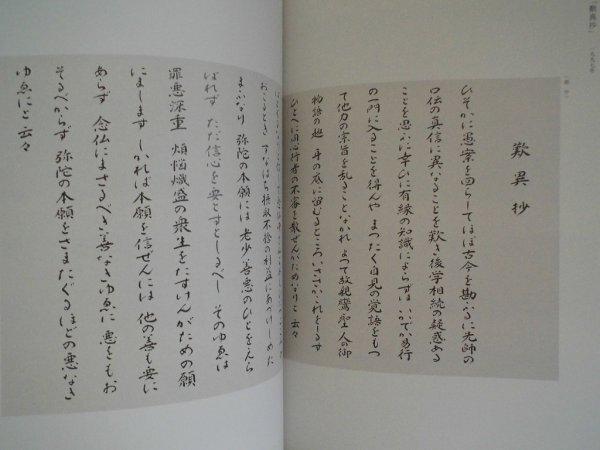 「歎異抄」 一九九七年
歎異抄
ひそかに愚案を回らしてほぼ古今を勘ふるに先師の
口伝の真信に異なることを歎き後学相続の疑惑ある
ことを思ふに幸ひに有縁の知識によらずはいかでか易行
の一門に入ることを得んや まつたく自見の覚語をもつ
て他力の宗旨を乱ることなかれ よつて故親鸞聖人の御
物語の趣 耳の底に留むるところいささかこれをしるす
ひとへに同心行者の不審を散ぜんがためなりと 云々
おこるとき すなはち摂取不捨の利益にあづけしめた
まふなり 弥陀の本願には 老少善悪のひとをえら
ばれず ただ信心を要とすとしるべし そのゆゑは
罪悪深重 煩悩熾盛の衆生をたすけんがための願
にまします しかれば本願を信ぜんには 他の善も要に
あらず 念仏にまさるべき善なきゆゑに 悪をもお
そるべからず 弥陀の本願をさまたぐるほどの悪なき
ゆゑにと 云々